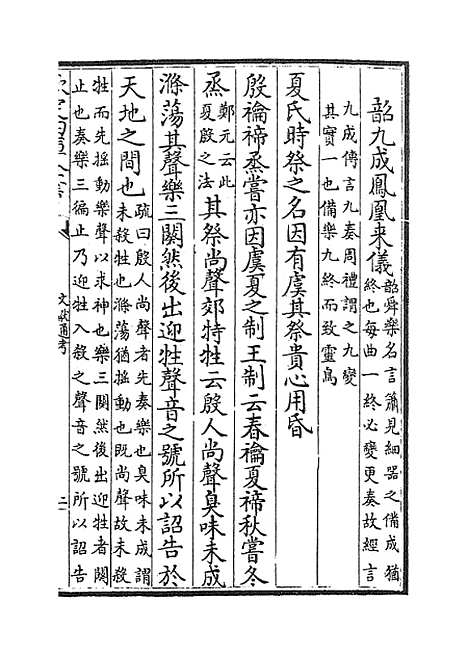 韶九成鳳凰来儀韶舜樂名言簫見細器之備成猶
終也每曲一終必變更奏故經言
九成傳言九奏周禮謂之九變
其實一也備樂九終而致靈鳥
夏氏時祭之名因有虞其祭貴心用昏
殷禴禘烝嘗亦因虞夏之制王制云春禴夏禘秋嘗冬
烝鄭元云此
夏殷之法其祭尚聲郊特牲云殷人尚聲臭味未成
滌蕩其聲樂三闋然後出迎牲聲音之號所以詔告於
天地之間也疏曰殷人尚聲者先奏樂也臭味未成謂
未殺牲也滌蕩猶揺動也既尚聲故未殺
牲而先揺動樂聲以求神也樂三闋然後出迎牲者闋
止也奏樂三徧止乃迎牲入殺之聲音之號所以詔告
文獻通考
二